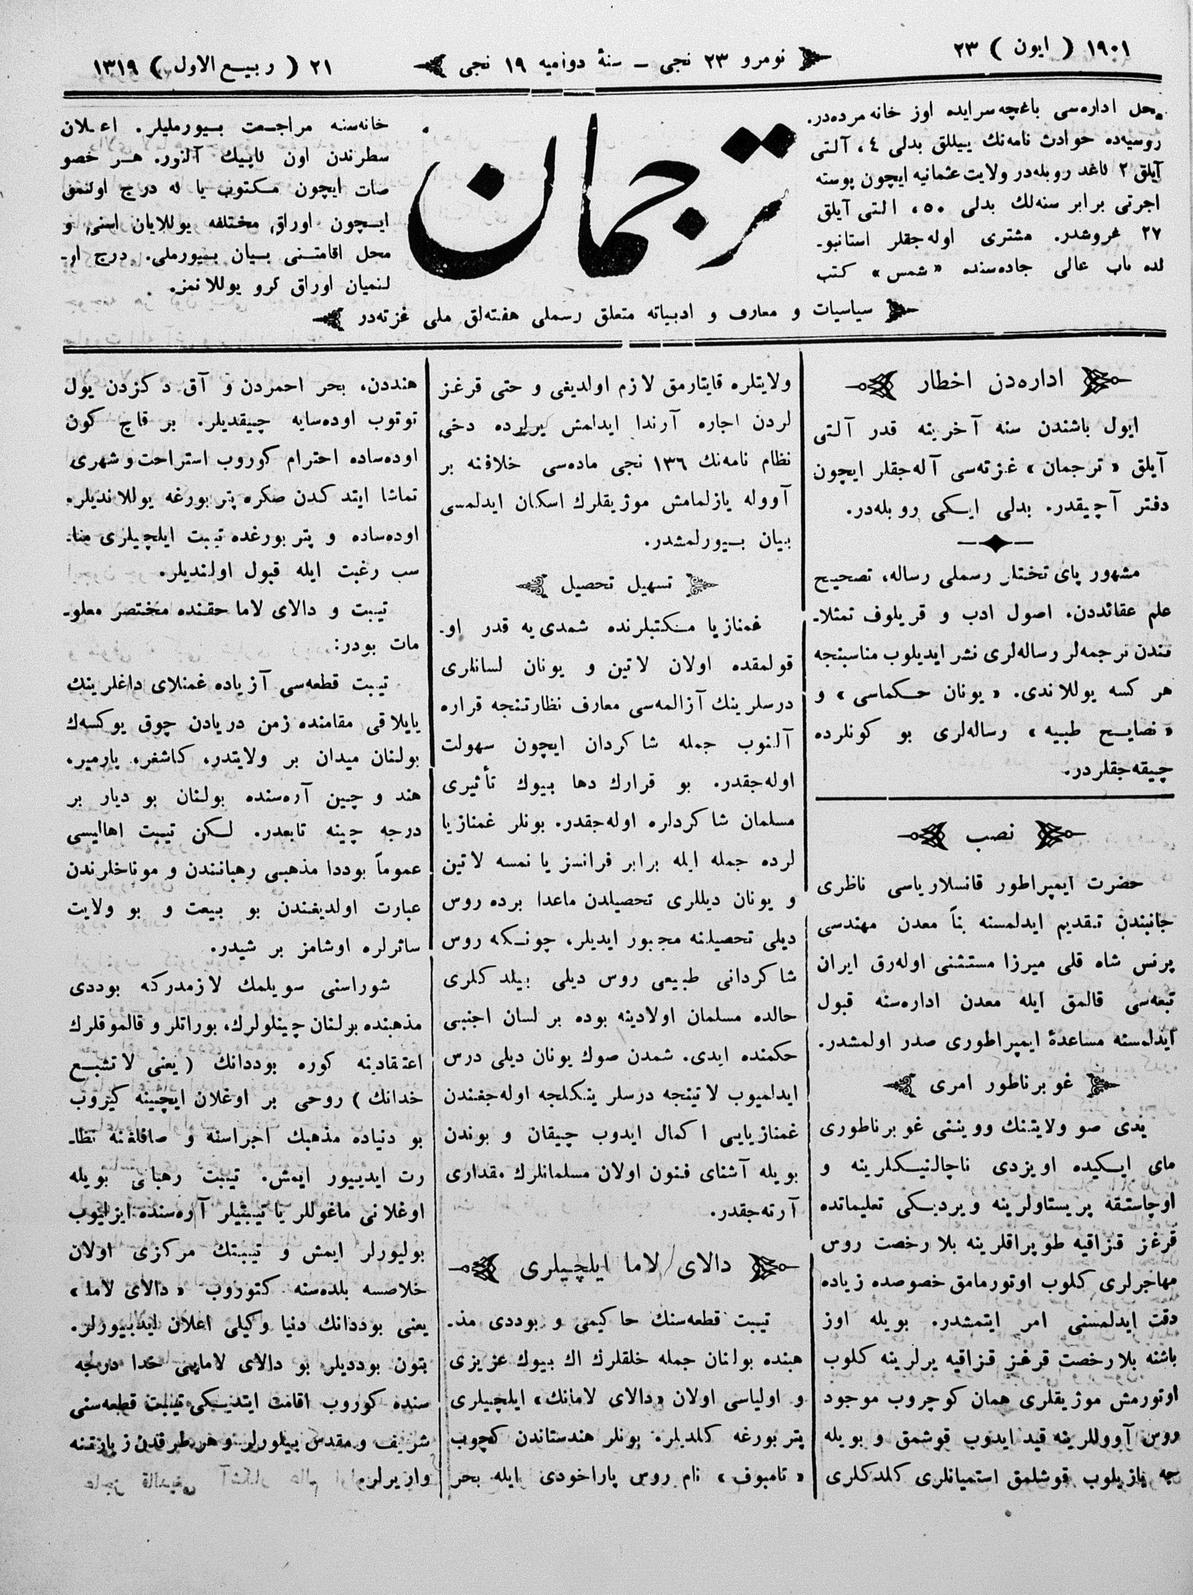 ١٩٠١ ( ایون ) ٢٣
نومرو ٢٣ نجی ـ سنۀ دوامیه ١٩ نجی
٢١ ( ربیع الاول ) ١٣١٩
محل اداره‌سی باغچه‌سرایده اوز خانه مزده‌در.
روسیه‌ده حوادث نامه‌نك ییللق بدلی ٤، آلتی
آیلق ٢ كاغد روبله‌در ولایت عثمانیه ایچون پوسته
اجرتی برابر سنه‌لك بدلی ٥٠، التی آیلق
٢٧ غروشدر. مشتری اوله‌جقلر استانبو-
لده باب عالی جاده‌سنده «شمس» كتب
ترجمان
خانه‌سنه مراجعت بیورملیلر. اعلان
سطرندن اون كاپیك آلنور. هر خصو
صات ایچون مكتوب یا كه درج اولنمق
ایچون اوراق مختلفه یوللایان اسنی و
محل اقامتنی بیان بیورملی. درج او-
لنمیان اوراق كرو یوللانمز.
سیاسیات و معارف و ادبیاته متعلق رسملی هفته‌لق ملی غزته‌در
اداره‌دن اخطار
ایول باشندن سنه آخرینه قدر آلتی
آیلق «ترجمان» غزته‌سی آله‌جقلر ایچون
دفتر آچیقدر. بدلی ایكی روبله‌در.
مشهور پای تختلر رسملی رساله، تصحیح
علم عقائددن، اصول ادب و قریلوف تمثلا-
تندن ترجمه‌لر رساله‌لری نشر ایدیلوب مناسبنجه
هر كسه یوللاندی. «یونان حكماسی» و
«نصایح طبیه» رساله‌لری بو كونلرده
چیقه‌جقلردر.
نصب
حضرت ایمپراطور قانسلاریاسی ناظری
جانبندن تقدیم ایدلمسنه بناً معدن مهندسی
پرنس شاه قلی میرزا مستثنی اوله‌رق ایران
تبعه‌سی قالمق ایله معدن اداره‌سنه قبول
ایدلمسنه مساعدۀ ایمپراطوری صدر اولمشدر.
غوبرناطور امری
یدی صو ولایتنك ووینی غوبرناطوری
مای ایكیده اویزدی ناچالنیكلرینه و
اوچاستقه پریستاولرینه ویردیكی تعلیماتده
قرغز قزاقیه طوپراقلرینه بلا رخصت روس
مهاجرلری كلوب اوتورمامق خصوصده زیاده
دقت ایدلمسنی امر ایتمشدر. بویله اوز
باشنه بلارخصت قرغز قزاقیه یرلرینه كلوب
اوتورمش موژیقلری همان كوچروب موجود
روس آووللرینه قید ایدوب قوشمق و بویله
جه یازیلوب قوشلمق استمیانلری كلدكلری
ولایتلره قایتارمق لازم اولدیغی و حتی قرغز
لردن اجاره آرندا ایدلمش یرلرده دخی
نظام نامه‌نك ١٣٦ نجی ماده‌سی خلافنه بر
آووله یازلمامش موژیقلرك اسكان ایدلمسی
بیان بیورلمشدر.
تسهیل تحصیل
غمنازیا مكتبلرنده شمدی‌یه قدر او-
قولمقده اولان لاتین و یونان لسانلری
درسلرینك آزالمه‌سی معارف نظارتنجه قراره
آلنوب جمله شاكردان ایچون سهولت
اوله‌جقدر. بو قرارك دها بیوك تأثیری
مسلمان شاكردلره اوله‌جقدر. بونلر غمنازیا
لرده جمله ایله برابر فرانسز یا نمسه لاتین
و یونان دیللری تحصیلدن ماعدا برده روس
دیلی تحصیلنه مجبور ایدیلر، چونكه روس
شاكردانی طبیعی روس دیلی بیلدكلری
حالده مسلمان اولادینه بوده بر لسان اجنبی
حكمنده ایدی. شمدن صوك یونان دیلی درس
ایدلمیوب لاتینجه درسلر ینكلجه اوله‌جغندن
غمنازیایی اكمال ایدوب چیقان و بوندن
بویله آشنای فنون اولان مسلمانلرك مقداری
آرته‌جقدر.
دالای لاما ایلچیلری
تیبت قطعه‌سنك حاكیمی و بوددی مذ-
هبنده بولنان جمله خلقلرك اك بیوك عزیزی
و اولیاسی اولان «دالای لامانك» ایلچیلری
پتربورغه كلدیلر. بونلر هندستاندن كچوب
«تامبوف» نام روس پاراخودی ایله بحر
هنددن، بحر احمردن و آق دكزدن یول
توتوب اوده‌سایه چیقدیلر. بر قاچ كون
اوده‌ساده احترام كوروب استراحت و شهری
تماشا ایتدكدن صكره پتربورغه یوللاندیلر.
اوده‌ساده و پتربورغده تیبت ایلچیلری منا-
سب رغبت ایله قبول اولندیلر.
تیبت و دالای لاما حقنده مختصر معلو-
مات بودر:
تیبت قطعه‌سی آزیاده غمنلای داغلرینك
یایلاقی مقامنده زمن دریادن چوق یوكسه‌ك
بولنان میدان بر ولایتدر، كاشغر، یارمیر،
هند و چین آره‌سنده بولنان بو دیار بر
درجه چینه تابعدر. لكن تیبت اهالیسی
عموماً بوددا مذهبی رهبانندن و موناخلرندن
عبارت اولدیغندن بو بیعت و بو ولایت
سائرلره اوشامز بر شیدر.
شوراسنی سویلمك لازمدركه بوددی
مذهبنده بولنان چینلولرك، بوراتلر و قالموقلرك
اعتقادینه كوره بوددانك (یعنی لاتشبع
خدانك) روحی بر اوغلان ایچینه كیروب
بو دنیاده مذهبك اجراسنه و صاقلغنه نظا-
رت ایدییور ایمش. تیبت رهبانی بویله
اوغلانی ماغوللر یا تیبتیلر آره‌سنده ایزلیوب
بولیورلر ایمش و تیبتك مركزی اولان
خلاصسه بلده‌سنه كتوروب «دالای لاما»
یعنی بوددانك دنیا وكیلی اعلان ایدییورلر.
بتون بوددیلر بو دالای لامایی خدا درجه
سنده كوروب اقامت ایتدیكی تیبت قطعه‌سنی
شریف و مقدس بیلورلر و هر طرفدن زیارتنه
واریرلر.